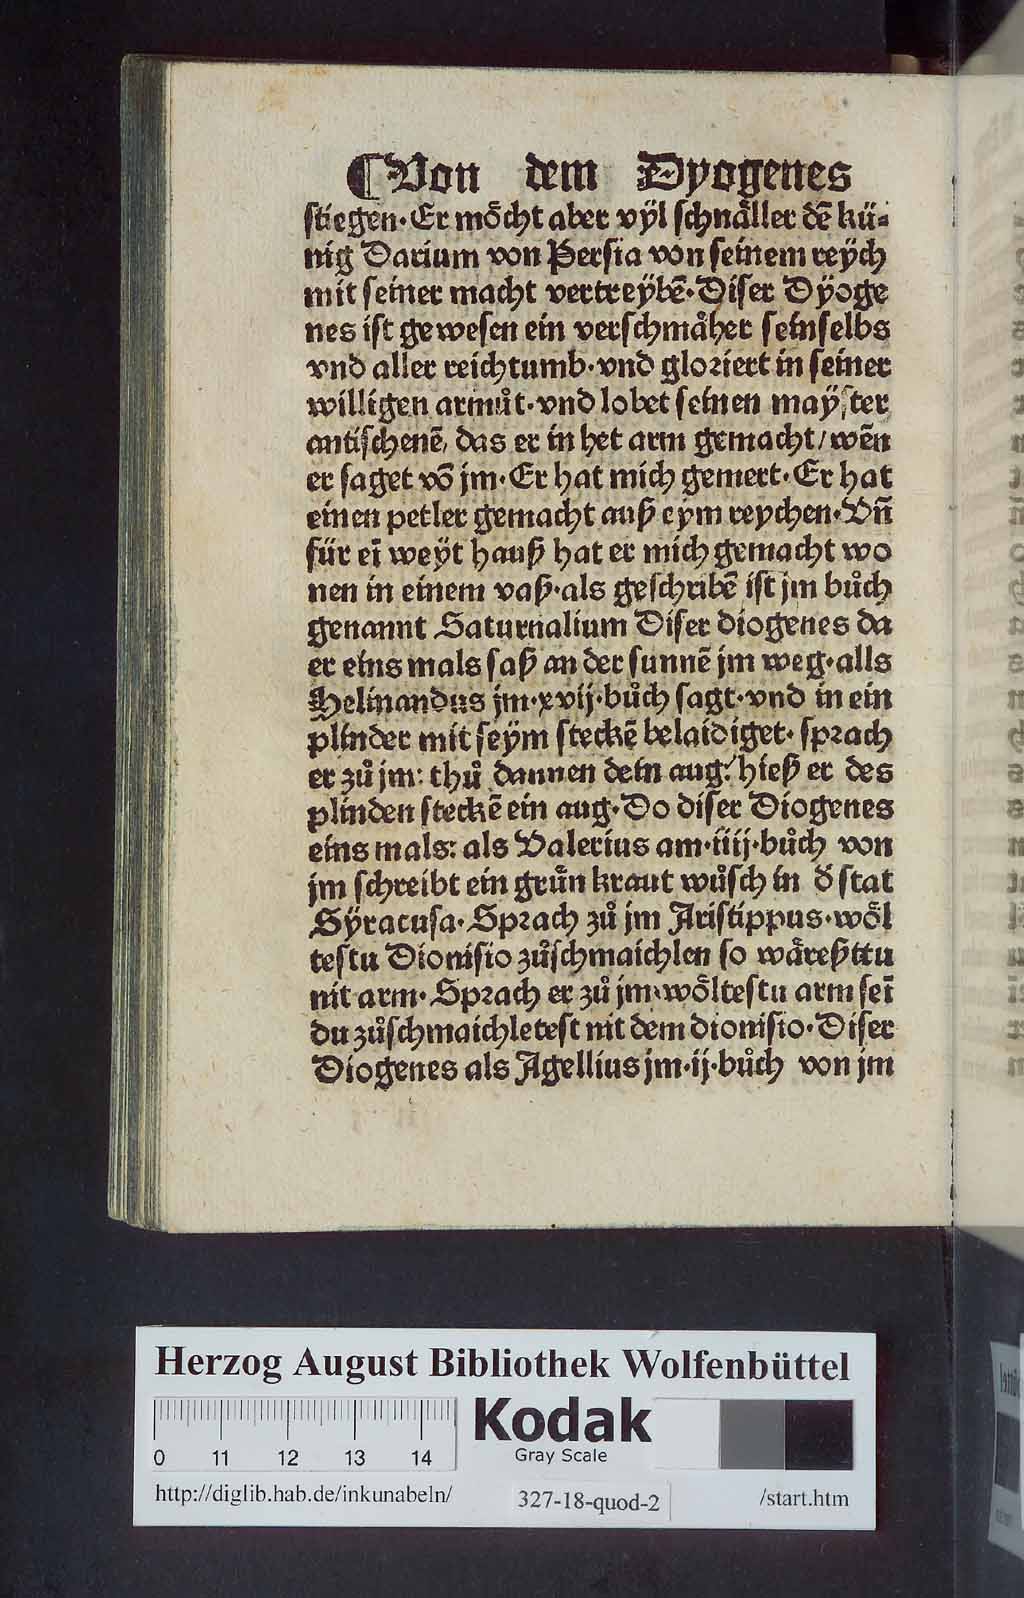 ¶Von dem Dyogenes
stiegen·Er moͤcht aber vÿl schnaͤller dē kü⸗
nig Darium von Persia von seinem reÿch
mit seiner macht vertreÿbē·Diser Dÿoge
nes ist gewesen ein verschmaͤher seinselbs
vnd aller reichtumb·vnd gloriert in seiner
willigen armuͦt·vnd lobet seinen maÿster
antischenē/ das er in het arm gemacht/ wēn
er saget vō jm·Er hat mich gemert·Er hat
einen petler gemacht auß eÿm reychen·Vn̄
für eī weÿt hauß hat er mich gemacht wo
nen in einem vaß·als geschribē ist jm buͦch
genannt Saturnalium Diser diogenes da
er eins mals saß an der sunnē jm weg·alls
Helinandus jm·xvij·buͦch sagt·vnd in ein
plinder mit seÿm steckē belaidiget· sprach
er zuͦ jm: thuͦ dannen dein aug: hieß er des
plinden steckē ein aug·Do diser Diogenes
eins mals: als Valerius am·iiij·buͦch von
jm schreibt ein gruͤn kraut wuͦsch in d̄ stat
Sÿracusa·Sprach zuͦ jm Aristippus·woͤl
testu Dionisio zuͦschmaichlen so waͤreßttu
nit arm· Sprach er zuͦ jm·woͤltestu arm seī
du zuͦschmaichletest nit dem dionisio·Diser
Diogenes als Agellius jm·ij·buͦch von jm
Herzog August Bibliothek Wolfenbüttel
0 11 12 13 14
Kodak
Gray Scale
http://diglib.hab.de/inkunabeln/ 327-18-quod-2 /start.htm